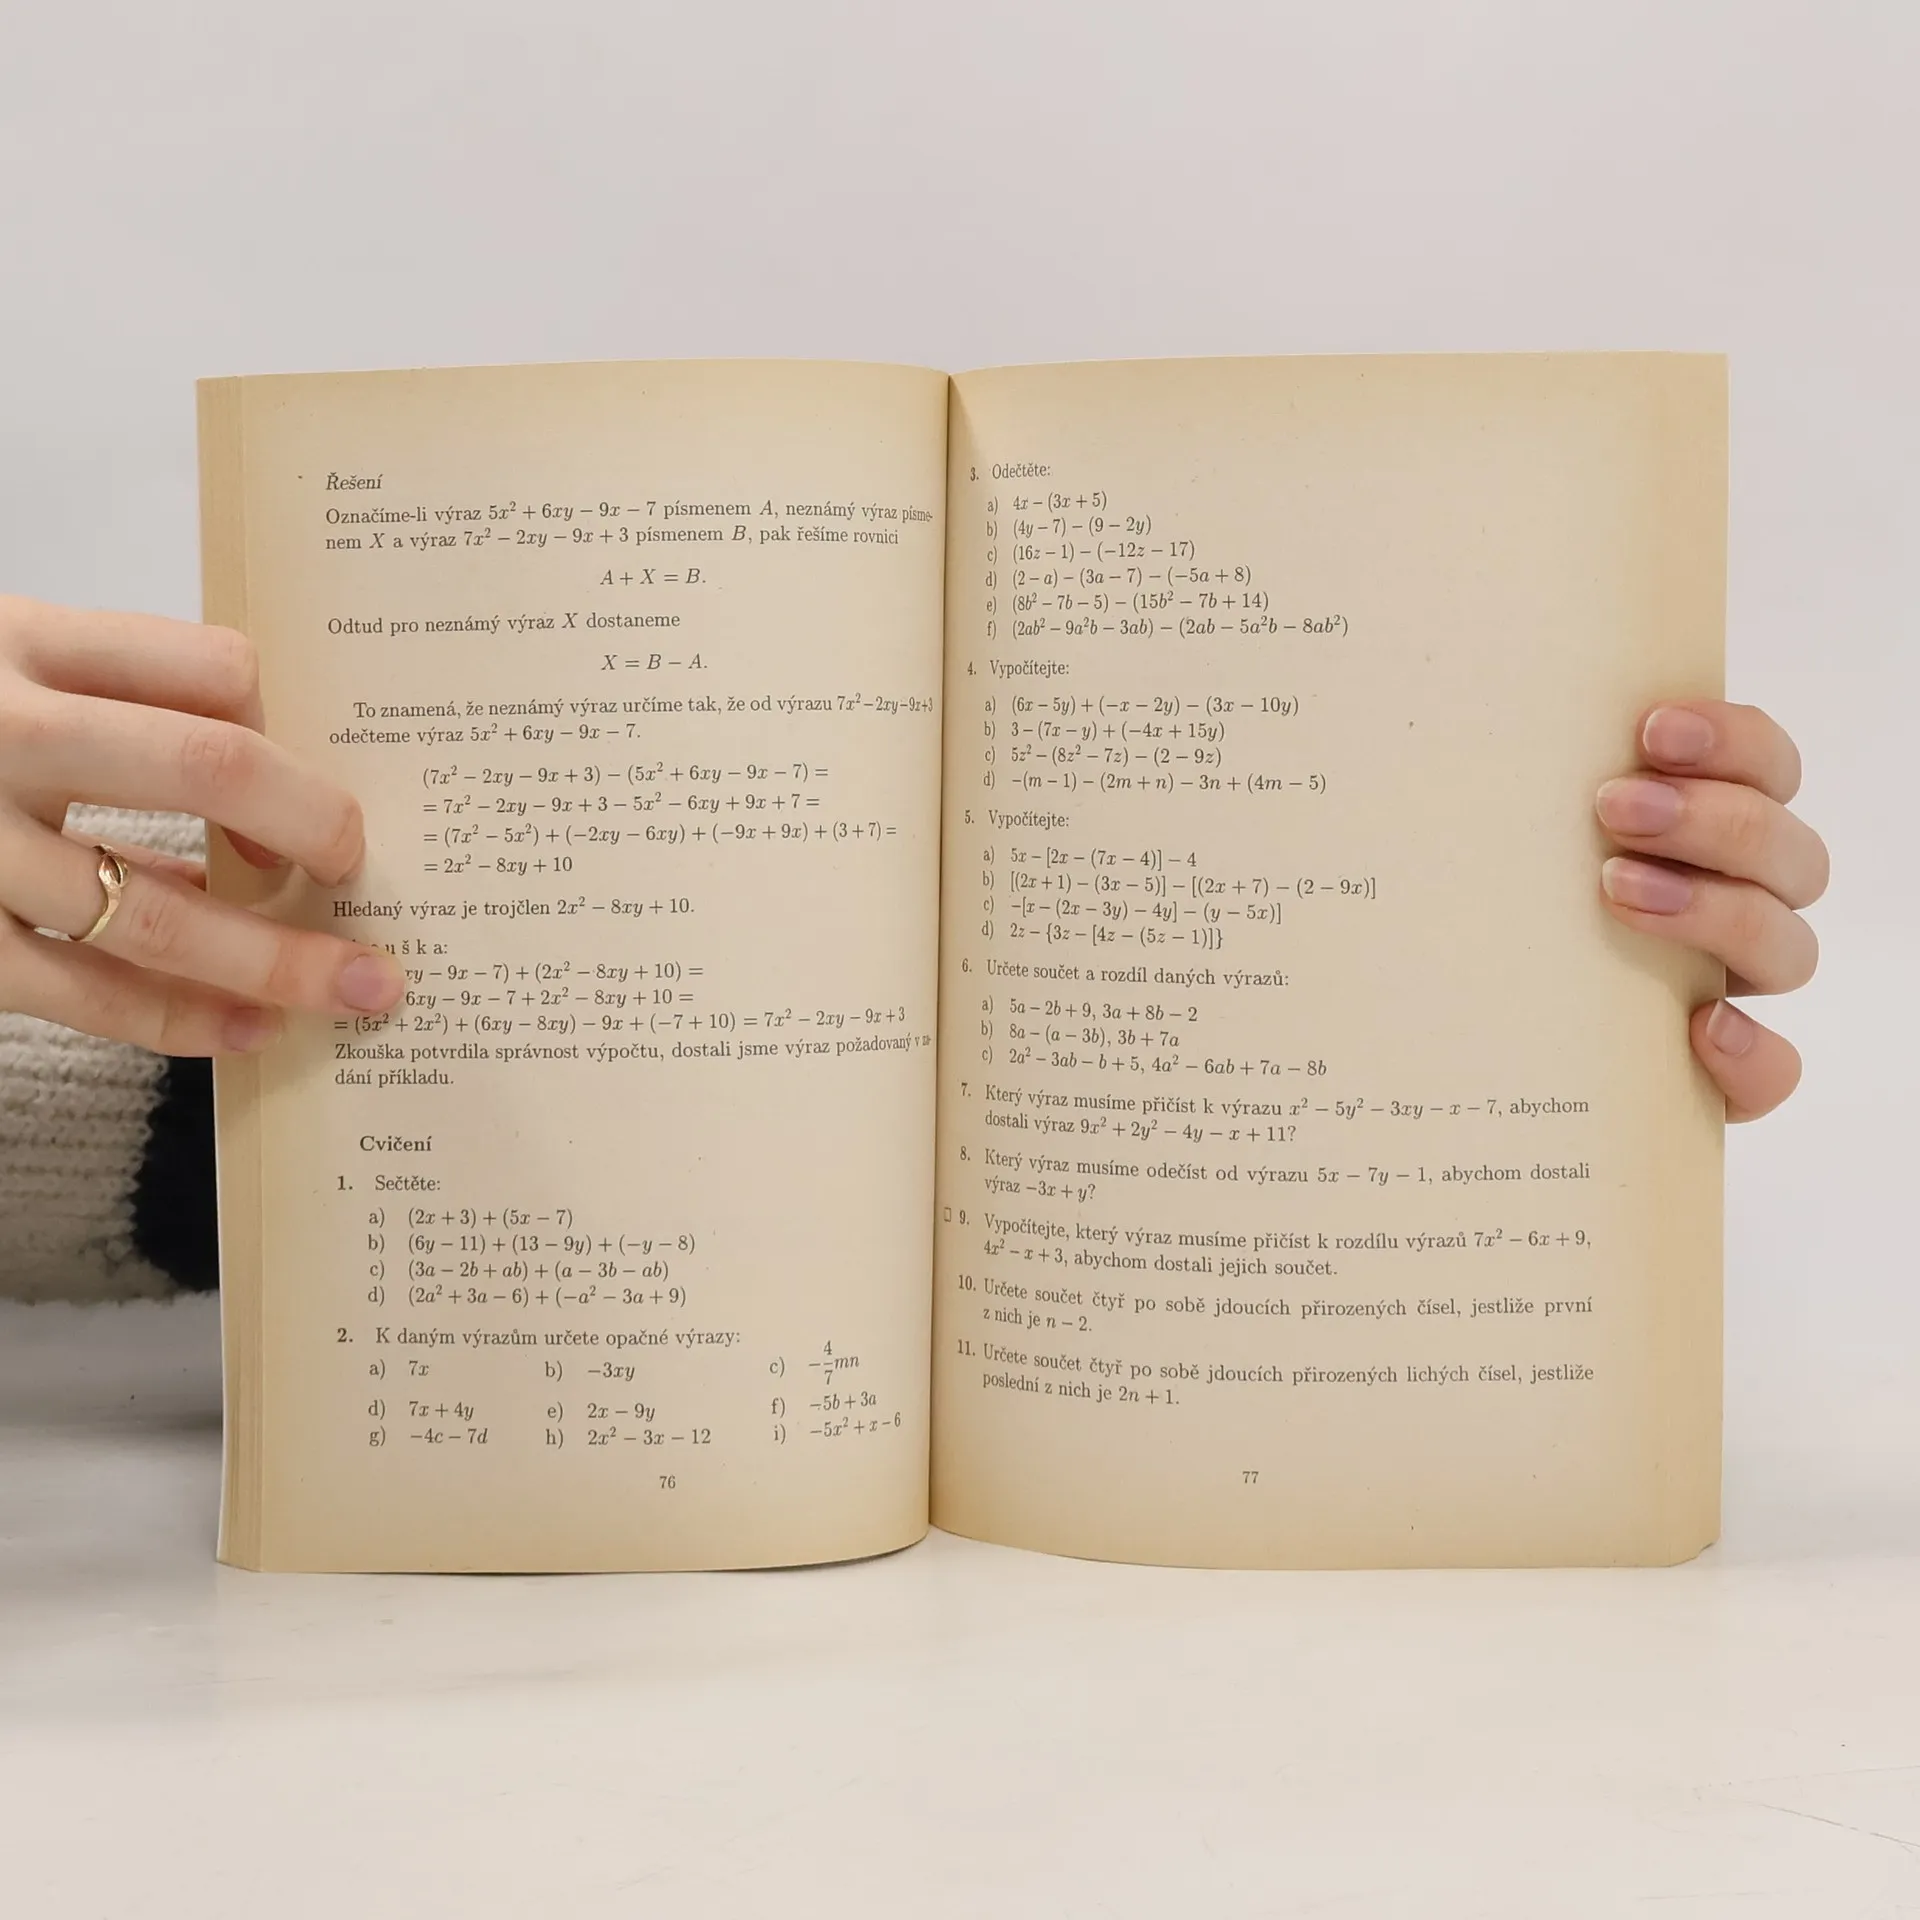 Řešení
Označíme-li výraz 5x² + 6xy − 9x − 7 písmenem A, neznámý výraz písme-
nem X a výraz 7x² − 2xy − 9x + 3 písmenem B, pak řešíme rovnici
A + X = B.
Odtud pro neznámý výraz X dostaneme
X = B − A.
To znamená, že neznámý výraz určíme tak, že od výrazu 7x²−2xy−9x+3
odečteme výraz 5x² + 6xy − 9x − 7.
(7x² − 2xy − 9x + 3) − (5x² + 6xy − 9x − 7) =
= 7x² − 2xy − 9x + 3 − 5x² − 6xy + 9x + 7 =
= (7x² − 5x²) + (−2xy − 6xy) + (−9x + 9x) + (3 + 7) =
= 2x² − 8xy + 10
Hledaný výraz je trojčlen 2x² − 8xy + 10.
u š k a:
xy − 9x − 7) + (2x² − 8xy + 10) =
6xy − 9x − 7 + 2x² − 8xy + 10 =
= (5x² + 2x²) + (6xy − 8xy) − 9x + (−7 + 10) = 7x² − 2xy − 9x + 3
Zkouška potvrdila správnost výpočtu, dostali jsme výraz požadovaný v za-
dání příkladu.
Cvičení
1. Sečtěte:
a) (2x + 3) + (5x − 7)
b) (6y − 11) + (13 − 9y) + (−y − 8)
c) (3a − 2b + ab) + (a − 3b − ab)
d) (2a² + 3a − 6) + (−a² − 3a + 9)
2. K daným výrazům určete opačné výrazy:
a) 7x b) −3xy c) −4/7mn
d) 7x + 4y e) 2x − 9y f) −5b + 3a
g) −4c − 7d h) 2x² − 3x − 12 i) −5x² + x − 6
76
3. Odečtěte:
a) 4x − (3x + 5)
b) (4y − 7) − (9 − 2y)
c) (16z − 1) − (−12z − 17)
d) (2 − a) − (3a − 7) − (−5a + 8)
e) (8b² − 7b − 5) − (15b² − 7b + 14)
f) (2ab² − 9a²b − 3ab) − (2ab − 5a²b − 8ab²)
4. Vypočítejte:
a) (6x − 5y) + (−x − 2y) − (3x − 10y)
b) 3 − (7x − y) + (−4x + 15y)
c) 5z² − (8z² − 7z) − (2 − 9z)
d) −(m − 1) − (2m + n) − 3n + (4m − 5)
5. Vypočítejte:
a) 5x − [2x − (7x − 4)] − 4
b) [(2x + 1) − (3x − 5)] − [(2x + 7) − (2 − 9x)]
c) −[x − (2x − 3y) − 4y] − (y − 5x)]
d) 2z − {3z − [4z − (5z − 1)]}
6. Určete součet a rozdíl daných výrazů:
a) 5a − 2b + 9, 3a + 8b − 2
b) 8a − (a − 3b), 3b + 7a
c) 2a² − 3ab − b + 5, 4a² − 6ab + 7a − 8b
7. Který výraz musíme přičíst k výrazu x² − 5y² − 3xy − x − 7, abychom
dostali výraz 9x² + 2y² − 4y − x + 11?
8. Který výraz musíme odečíst od výrazu 5x − 7y − 1, abychom dostali
výraz −3x + y?
□ 9. Vypočítejte, který výraz musíme přičíst k rozdílu výrazů 7x² − 6x + 9,
4x² − x + 3, abychom dostali jejich součet.
10. Určete součet čtyř po sobě jdoucích přirozených čísel, jestliže první
z nich je n − 2.
11. Určete součet čtyř po sobě jdoucích přirozených lichých čísel, jestliže
poslední z nich je 2n + 1.
77